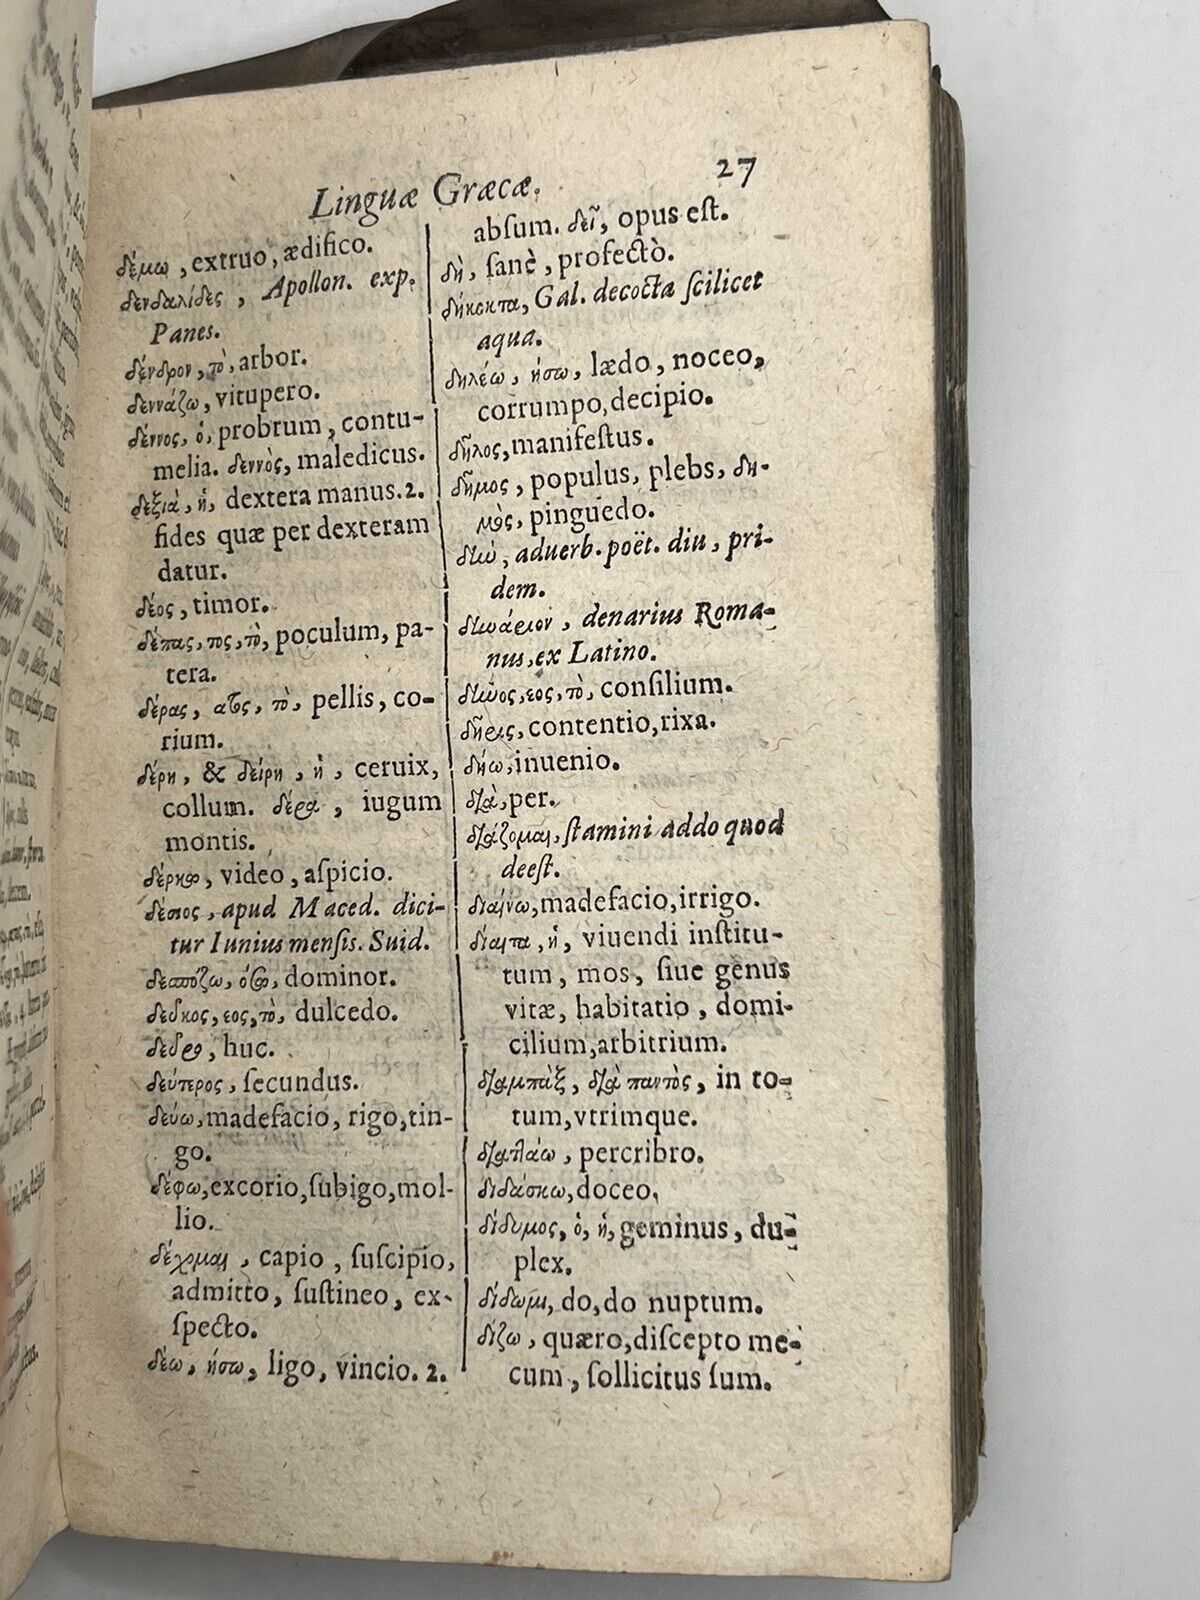 Linguæ Græcæ.
27
δέμω, extruo, ædifico.
δενδαλίδες, Apollon. exp.
Panes.
δένδρον, τὸ, arbor.
δεννάζω, vitupero.
δέννος, ὁ, probrum, contu-
melia. δεννὸς, maledicus.
δεξιὰ, ἡ, dextera manus. 2.
fides quæ per dexteram
datur.
δέος, timor.
δέπας, τος, τὸ, poculum, pa-
tera.
δέρας, ατος, τὸ, pellis, co-
rium.
δέρη, & δείρη, ἡ, ceruix,
collum. δέρα, iugum
montis.
δέρκω, video, aſpicio.
δέσιος, apud Maced. dici-
tur Iunius menſis. Suid.
δεσπόζω, όσω, dominor.
δεῦκος, εος, τὸ, dulcedo.
δεῦρο, huc.
δεύτερος, ſecundus.
δεύω, madefacio, rigo, tin-
go.
δέφω, excorio, ſubigo, mol-
lio.
δέχομαι, capio, ſuſcipio,
admitto, ſuſtineo, ex-
ſpecto.
δέω, ήσω, ligo, vincio. 2.
abſum. δεῖ, opus eſt.
δὴ, ſanè, profectò.
δήκοκτα, Gal. decocta ſcilicet
aqua.
δηλέω, ήσω, lædo, noceo,
corrumpo, decipio.
δῆλος, manifeſtus.
δῆμος, populus, plebs, δη-
μὸς, pinguedo.
δὴν, aduerb. poët. diu, pri-
dem.
δηνάριον, denarius Roma-
nus, ex Latino.
δῆνος, εος, τὸ, conſilium.
δῆρις, contentio, rixa.
δήω, inuenio.
διὰ, per.
διάζομαι, ſtamini addo quod
deeſt.
διαίνω, madefacio, irrigo.
δίαιτα, ἡ, viuendi inſtitu-
tum, mos, ſiue genus
vitæ, habitatio, domi-
cilium, arbitrium.
διαμπὰξ, διὰ παντὸς, in to-
tum, vtrimque.
διατλάω, percribro.
διδάσκω, doceo.
δίδυμος, ὁ, ἡ, geminus, du-
plex.
δίδωμι, do, do nuptum.
δίζω, quæro, diſcepto me-
cum, ſollicitus ſum.